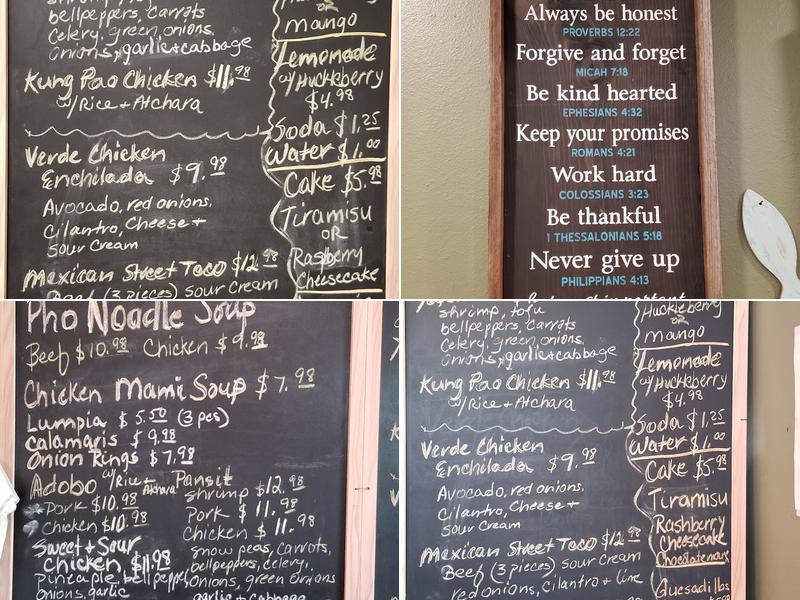 bellpeppers, carrots
celery, green onions,
onions, garlic+cabbage
Kung Pao Chicken $11.98
w/Rice + Atchara
Verde Chicken
Enchilada $9.98
Avocado, red onions,
cilantro, Cheese +
sour cream
Mexican Street Taco $12.98
Beef (3 pieces) sour cream
OR
mango
Lemonade
w/Huckleberry
$4.98
Soda $1.25
Water $1.00
Cake $5.98
Tiramisu
OR
Raspberry
Cheesecake
Always be honest
PROVERBS 12:22
Forgive and forget
MICAH 7:18
Be kind hearted
EPHESIANS 4:32
Keep your promises
ROMANS 4:21
Work hard
COLOSSIANS 3:23
Be thankful
1 THESSALONIANS 5:18
Never give up
PHILIPPIANS 4:13
Pho Noodle Soup
Beef $10.98 Chicken $9.98
Chicken Mami Soup $7.98
Lumpia $5.50 (3 pcs)
Calamaris $9.98
Onion Rings $7.98
Adobo w/Rice +
Pork $10.98
chicken $10.98
Sweet + Sour
chicken $11.98
pineaple, bell pepper,
onions, garlic
Pansit
shrimp $12.98
Pork $11.98
Chicken $11.98
snow peas, carrots,
bellpeppers, celery,
onions, green onions
garlic + cabbage
shrimp, tofu
bellpeppers, carrots
celery, green onions,
onions, garlic+cabbage
Kung Pao Chicken $11.98
w/Rice + Atchara
Verde Chicken
Enchilada $9.98
Avocado, red onions,
cilantro, Cheese +
sour cream
Mexican Street Taco $12.98
Beef (3 pieces) sour cream
red onions, cilantro + lime
Huckleberry
OR
mango
Lemonade
w/Huckleberry
$4.98
Soda $1.25
Water $1.00
Cake $5.98
Tiramisu
Rashberry
Cheesecake
Quesadillas